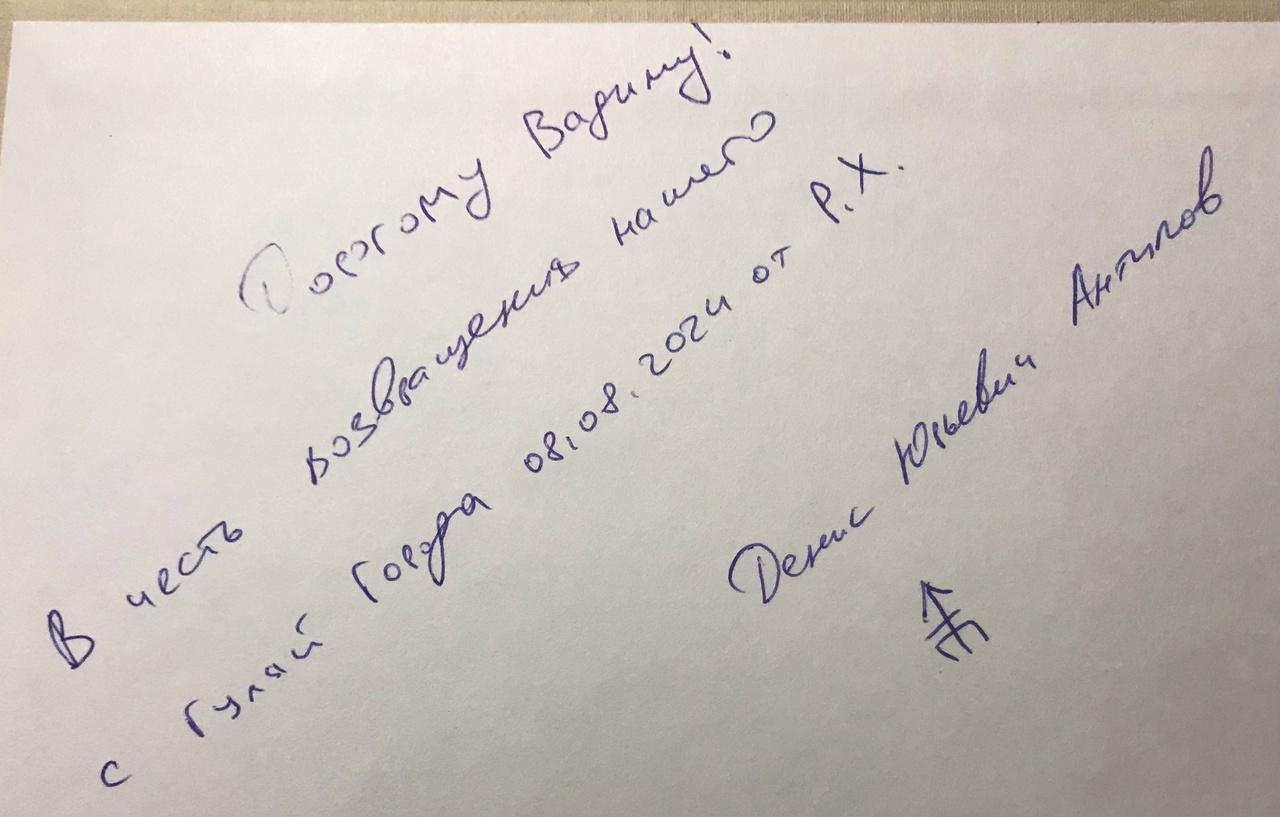 Дорогому Вадиму!
В честь возвращения нашего
с Гуляй Города 08.08.2024 от Р.Х.
Денис Юрьевич Антипов